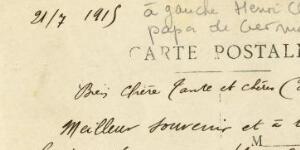 21/7 1915
à gauche Henri
papa de
CARTE POSTALE
Bien chère tante et chères
Meilleur souvenir et à
M